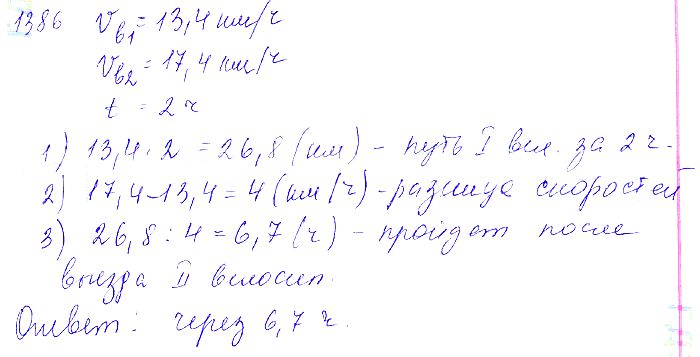 1386 Vв1 = 13,4 км/ч
Vв2 = 17,4 км/ч
t = 2 ч
1) 13,4 · 2 = 26,8 (км) - путь I вел. за 2 ч.
2) 17,4 - 13,4 = 4 (км/ч) - разница скоростей
3) 26,8 : 4 = 6,7 (ч) - пройдет после
выезда II велосип.
Ответ: через 6,7 ч.